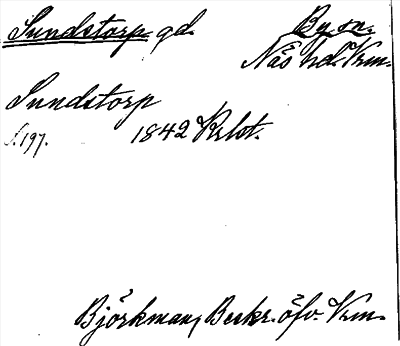 Sundstorp. gd. By sn.
Näs hd. Vrm.
Sundstorp
s. 197. 1842 Krlst.
Björkman, Beskr. öfv. Vrm.